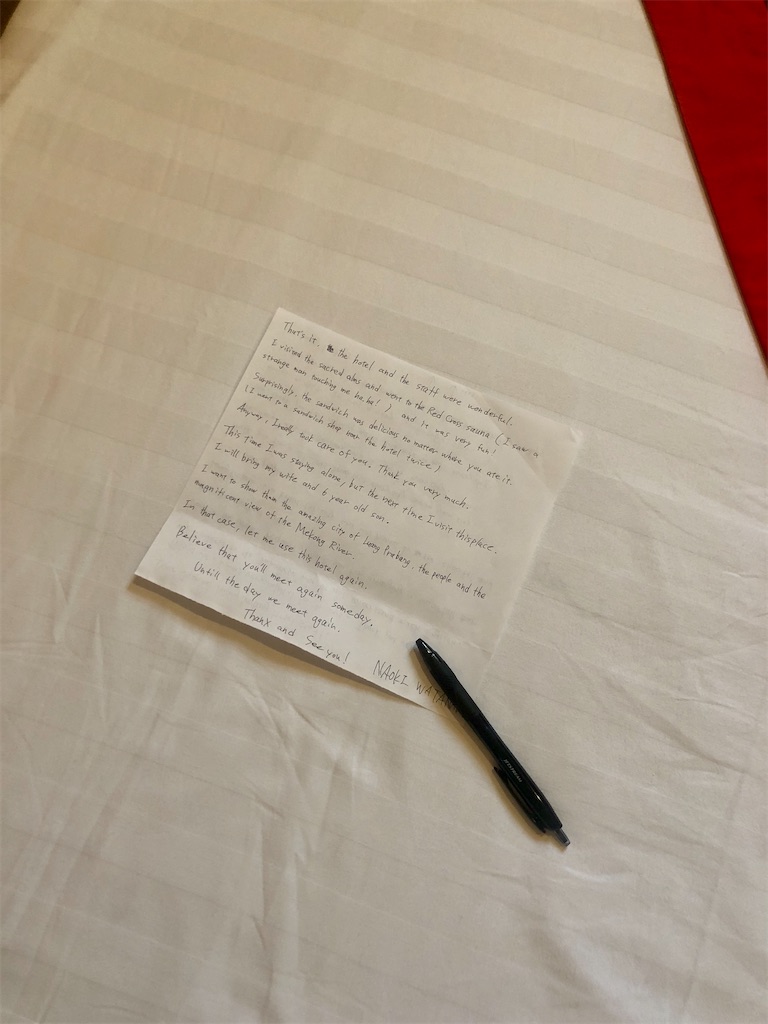 That's it. the hotel and the staff were wonderful.
I visited the sacred and went to the Red Cross sauna (I saw a
strange man touching me he he!) and it was very fun!
Surprisingly, the sandwich was delicious no matter where you ate it.
(I went to a sandwich shop near the hotel twice)
Anyway, I really took care of you. Thank you very much.
This time I was staying alone, but the next time I visit this place.
I will bring my wife and 6 year old son.
I want to show them the amazing city of Luang Prabang, the people and the
magnificent view of the Mekong River.
In that case, let me use this hotel again.
Believe that you'll meet again someday.
Untill the day we meet again.
Thanx and See you!
NAOKI